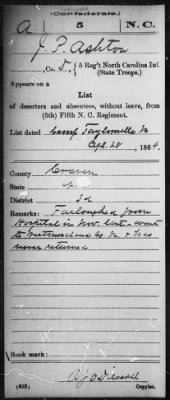 (Confederate.)
A 5 N.C.
J. P. Ashton
, Co. D, 5 Reg't North Carolina Inf.
(State Troops.)
Appears on a
List
of deserters and absentees, without leave, from
(5th) Fifth N. C. Regiment.
List dated Camp Taylorsville Va
Apl. 28, 1864.
County, Craven
State
District 3d
Remarks: Furloughed from
Hospital in Nov. last - went
to Co. & has
never returned
Book mark:
(652) Copyist.